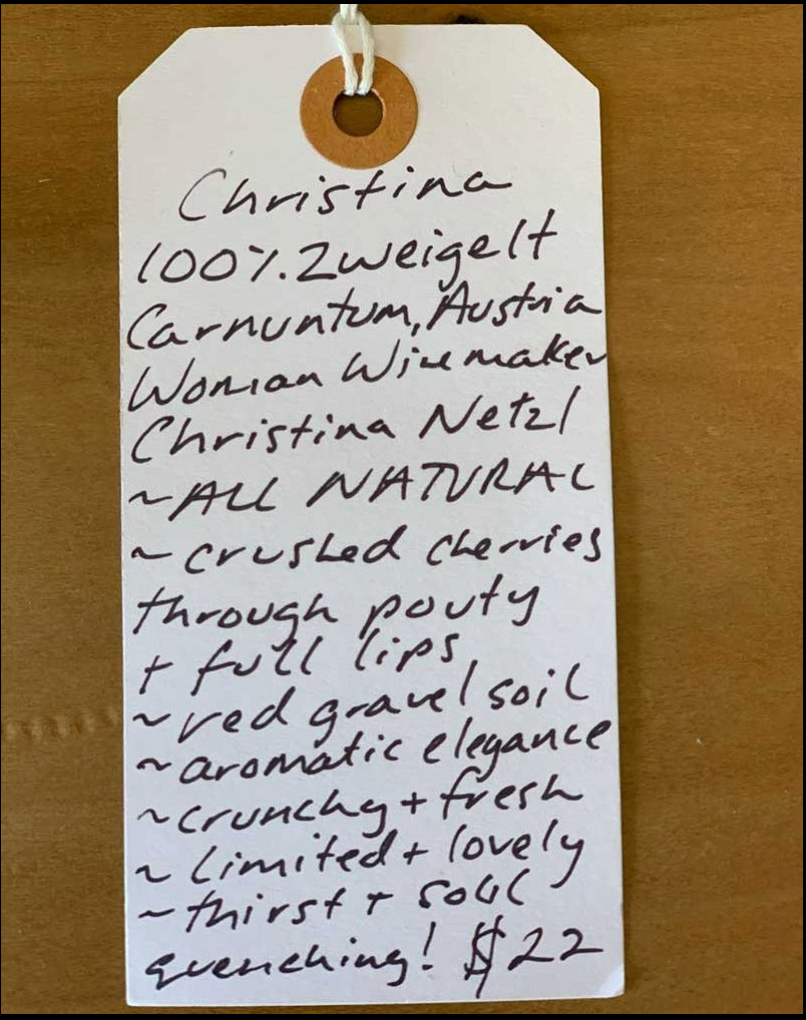 Christina
100%.Zweigelt
Carnuntum, Austria
Woman Winemaker
Christina Netzl
~ALL NATURAL
~crushed cherries
through pouty
+ full lips
~red gravel soil
~aromatic elegance
~crunchy + fresh
~limited + lovely
~thirst + soul
quenching! $22